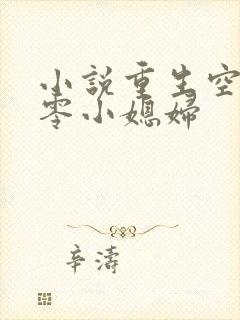 小說重生空
零小媳婦
辛濤